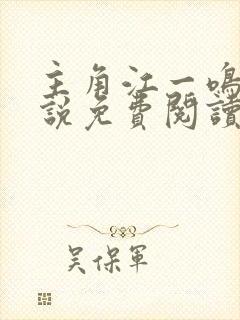 主角江一鳴
說免費閱讀
吴保軍